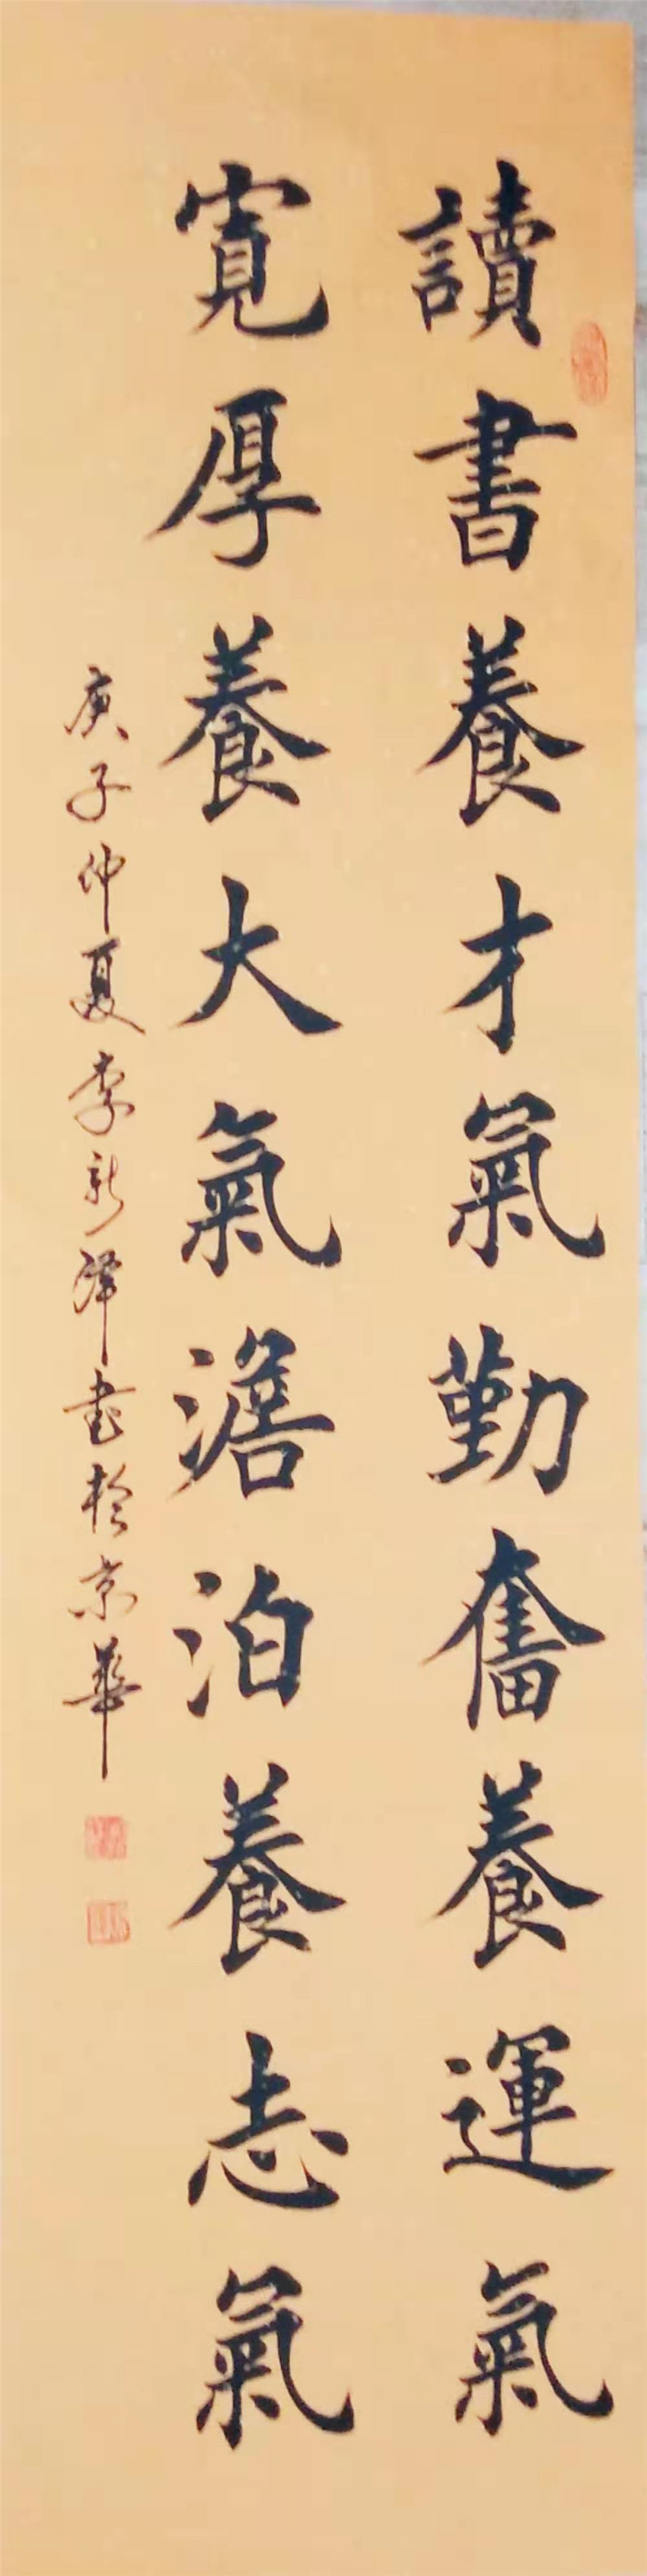 讀書養才氣勤奮養運氣
寬厚養大氣澹泊養志氣
庚子仲夏李新澤書於京華